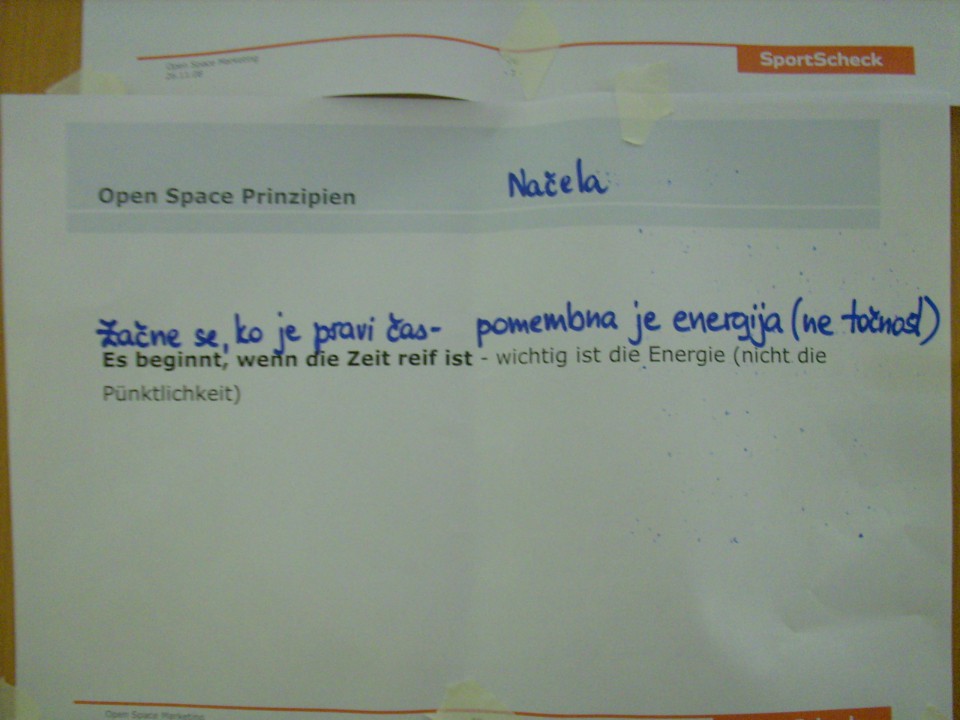 Open Space Marketing
26.11.08
SportScheck
Open Space Prinzipien
Načela
Začne se, ko je pravi čas- pomembna je energija (ne točnost)
Es beginnt, wenn die Zeit reif ist - wichtig ist die Energie (nicht die
Pünktlichkeit)
Open Space Marketing